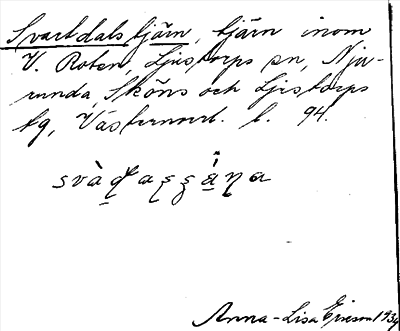 Svartdalstjärn, tjärn inom
V. Roten, Ljustorps sn, Nju-
runda, Sköns och Ljustorps
tg, Västernorrl. l. 94.
Anna-Lisa Ericson 1934